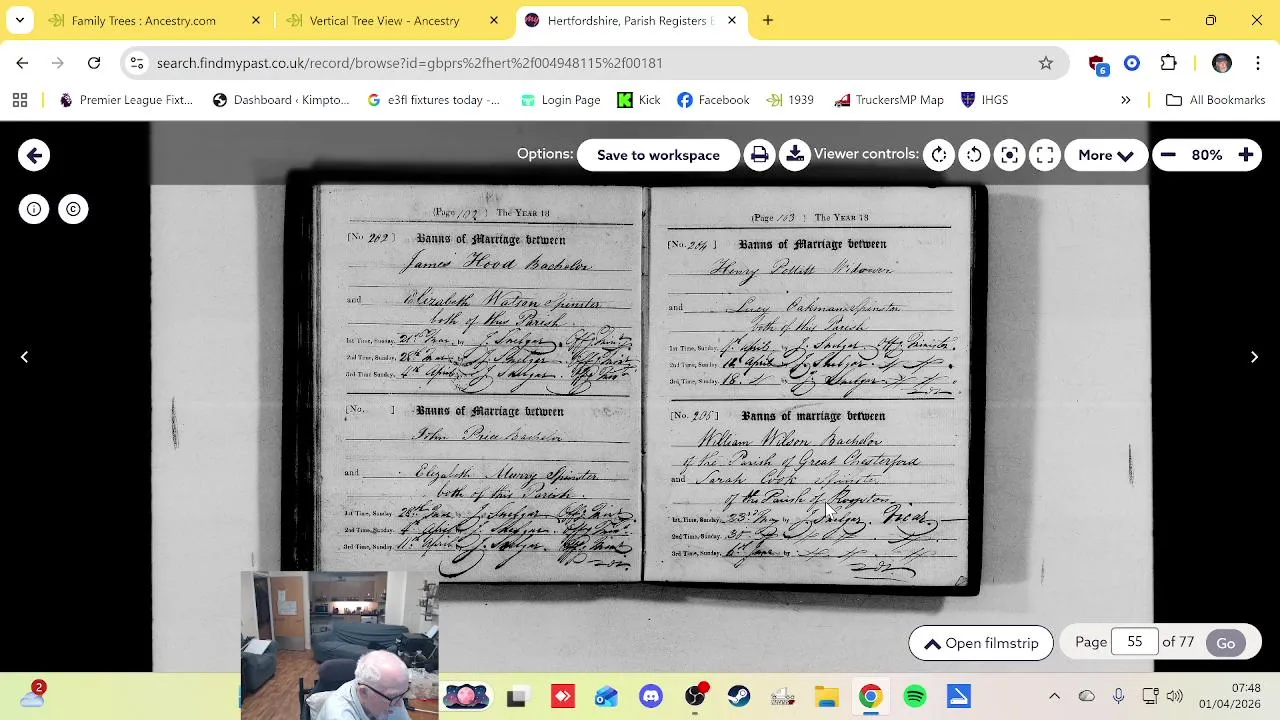 Family Trees : Ancestry.com
Vertical Tree View - Ancestry
Hertfordshire, Parish Registers B
search.findmypast.co.uk/record/browse?id=gbprs%2fhert%2f004948115%2f00181
6
Premier League Fixt...
Dashboard ‹ Kimpto...
e3fl fixtures today -...
Login Page
Kick
Facebook
1939
TruckersMP Map
IHGS
»
All Bookmarks
Options:
Save to workspace
Viewer controls:
More
80%
(Page 102 ) The YEAR 18
[No. 262 ] Banns of Marriage between
James Hood Bachelor
and Elizabeth Watson Spinster
both of this Parish
1st Time, Sunday, 21st by J. Snelgar
2nd Time, Sunday, 28th J. Snelgar
3rd Time Sunday, 4th April J. Snelgar
[No. ] Banns of Marriage between
John Price Bachelor
and Elizabeth Spinster
both of this Parish
1st Time, Sunday, 28th J. Snelgar
2nd Time, Sunday, April J. Snelgar
3rd Time, Sunday, 11th April by J. Snelgar
(Page 103 ) The YEAR 18
[No. 264 ] Banns of Marriage between
Henry Pettitt Widower
and Lucy Oakman Spinster
both of this Parish
1st Time, Sunday, April by J. Snelgar Minister
2nd Time, Sunday, April J. Snelgar
3rd Time, Sunday, 18 by J. Snelgar
[No. 265 ] Banns of marriage between
William Wilson Bachelor
of the Parish of Great Chesterford
and Sarah Cook Spinster
of this Parish of Royston
1st Time, Sunday, 23rd May by J. Snelgar. Vicar
2nd Time, Sunday, 30
3rd Time, Sunday, June by
Open filmstrip
Page 55 of 77 Go
2
07:48
01/04/2026